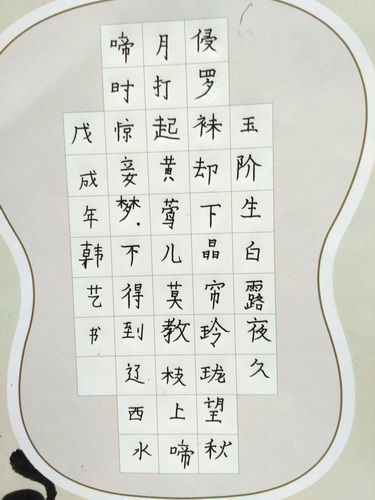 玉阶生白露夜久
侵罗袜却下晶帘玲珑望秋
月打起黄莺儿莫教枝上啼
啼时惊妾梦不得到辽西水
戊成年韩艺书